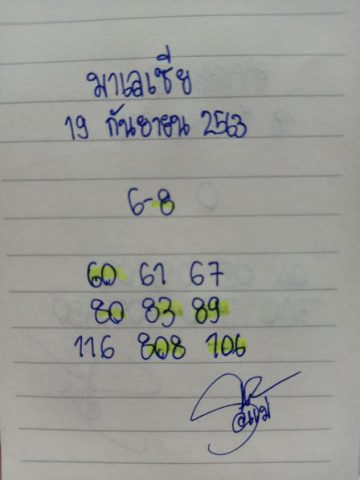 มาเลเซีย
19 กันยายน 2563
6-8
60 61 67
80 83 89
116 808 706